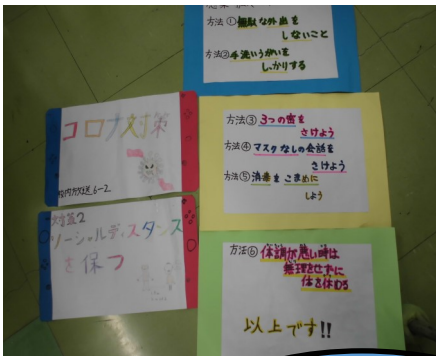 方法①無駄な外出を
しないこと
方法②手洗いうがいを
しっかりする
コロナ対策
校内放送 6-2
方法③3つの密を
さけよう
方法④マスクなしの会話を
さけよう
方法⑤消毒をこまめに
しよう
対策2
ソーシャルディスタンス
を保つ
方法⑥体調が悪い時は
無理をせずに
体を休める
以上です!!